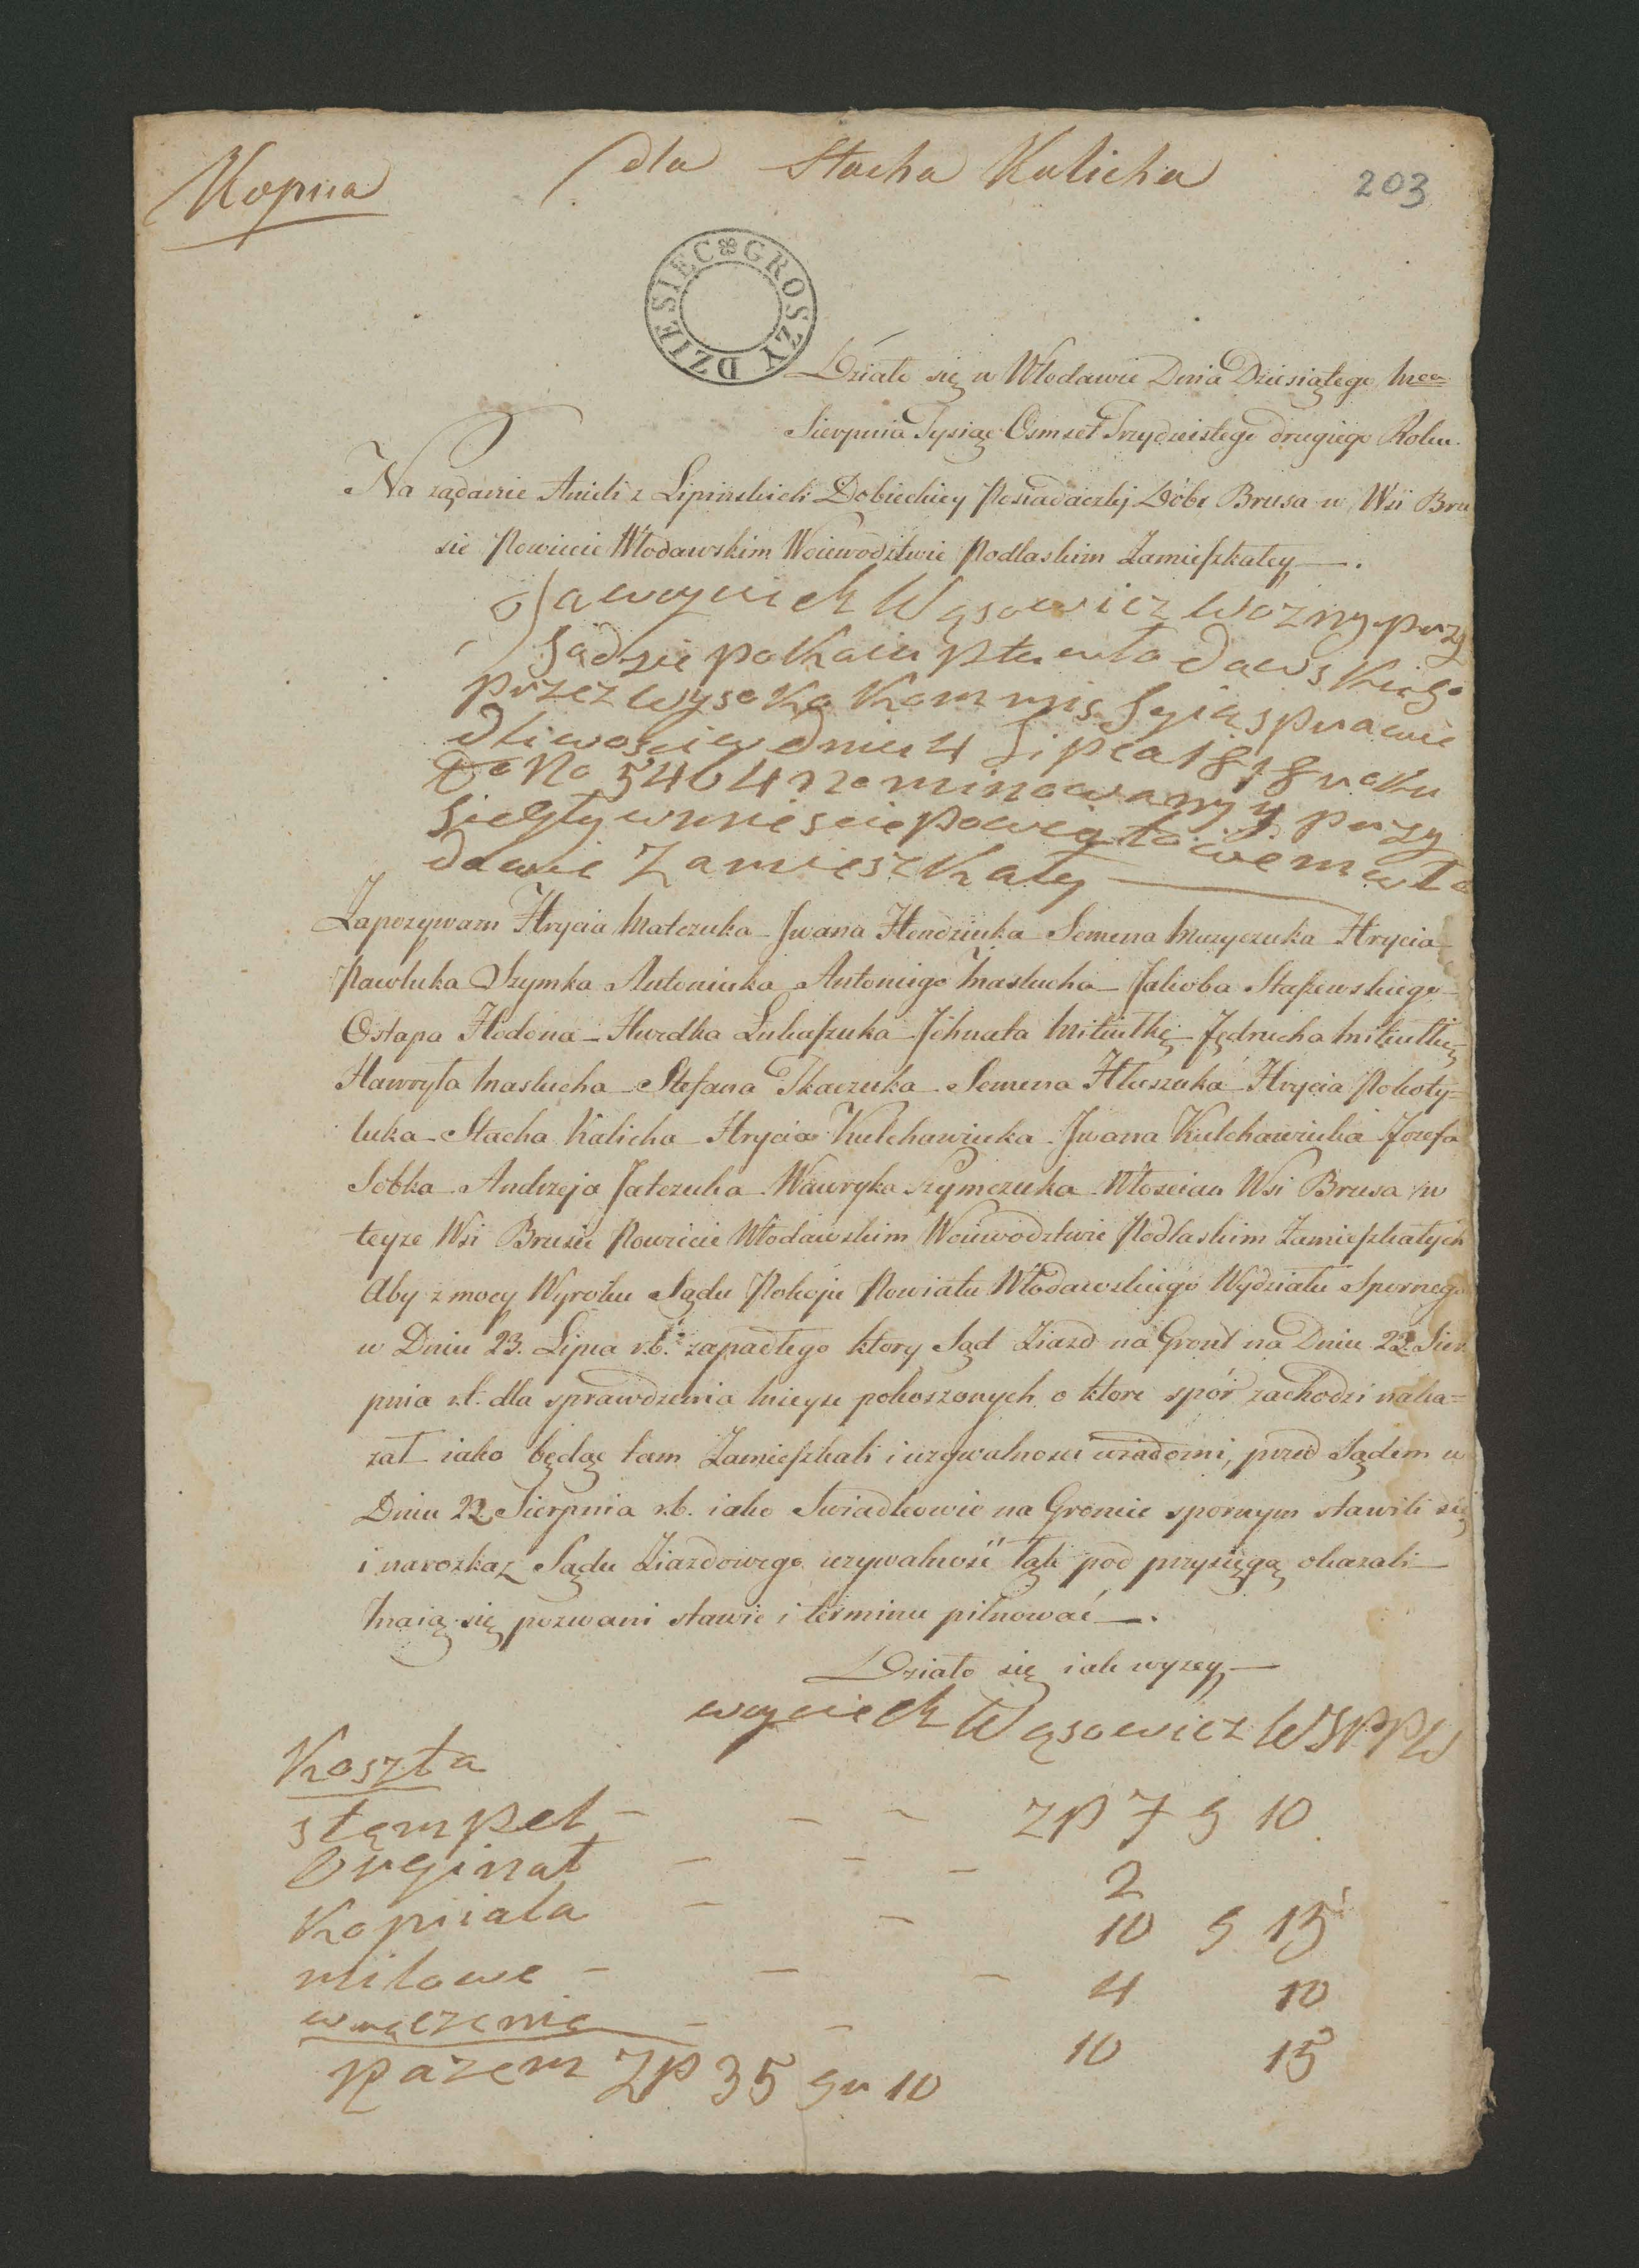 Kopiia
dla Stacha Kalicha
203
DZIESIĘC GROSZY
Działo się w Włodawie Dnia Dziesiątego
Sierpnia Tysiąc Osmset Trzydziestego drugiego Roku.
Na ządanie Anieli z Lipinskich Dobieckiey Posiadaczki Dóbr Brusa w Wsi Bru
sie Powiecie Włodawskim Woiewodztwie Podlaskim Zamieszkałey —.
Ja woyciech Wąsowicz Wozny przy
Sądzie pokoiu ptu włodawskiego
przez wysoką Kommissyią sprawie
dliwosci w dniu 4 Lipca 1818 roku
do No 5464 nominowany y przy
Sięgły w miescie powiatowem wło
dawie Zamieszkały —
Zapozywam Hrycia Matczuka – Jwana Hendziuka Semena Muzyczuka Hrycia
Pawluka Szymka Antoniuka Antoniego Maslucha – Jakoba Staszewskiego
Ostapa Hodona – Hwedka Lukaszuka – Jhnata Mikiutkę – Jędrucha Mikiutkę
Hawryła Maslucha – Stefana Tkaczuka – Semena Hluszuka Hrycia Pokoty=
luka – Stacha Kalicha – Hrycia Kulchawiuka – Jwana Kulchawiuka Jozefa
Sobka – Andrzeja Jatczuka Wawryka Szymczuka Włoscian Wsi Brusa w
teyze Wsi Brusie Powiecie Włodawskim Woiewodztwie Podlaskim Zamieszkałych
Aby z mocy Wyroku Sądu Pokoju Powiatu Włodawskiego Wydziału Spornego
w Dniu 23. Lipca r.b. zapadłego ktory Sąd Ziazd na Gront na Dniu 22. Sier
pnia r.b. dla sprawdzenia mieysc pokoszonych o ktore spór zachodzi naka=
zał iako będąc tam Zamieszkali i uzywalnosci wiadomi, przed Sądem w
Dniu 22 Sierpnia r.b. iako Swiadkowie na Groncie spornym stawili się
i na rozkaz Sądu Ziazdowego uzywalnosć tąk pod przysięgą okazali —
Maią się pozwani stawic i terminu pilnować —.
Działo się iak wyzey —
woyciech Wąsowicz WSPPW
Koszta
stęmpel – – – ZP 7 g 10
Orginał – – – 2
Kopiiała – – 10 g 15
milowe – – – 4 10
wręczenie – – 10 15
Razem ZP 35 gr 10